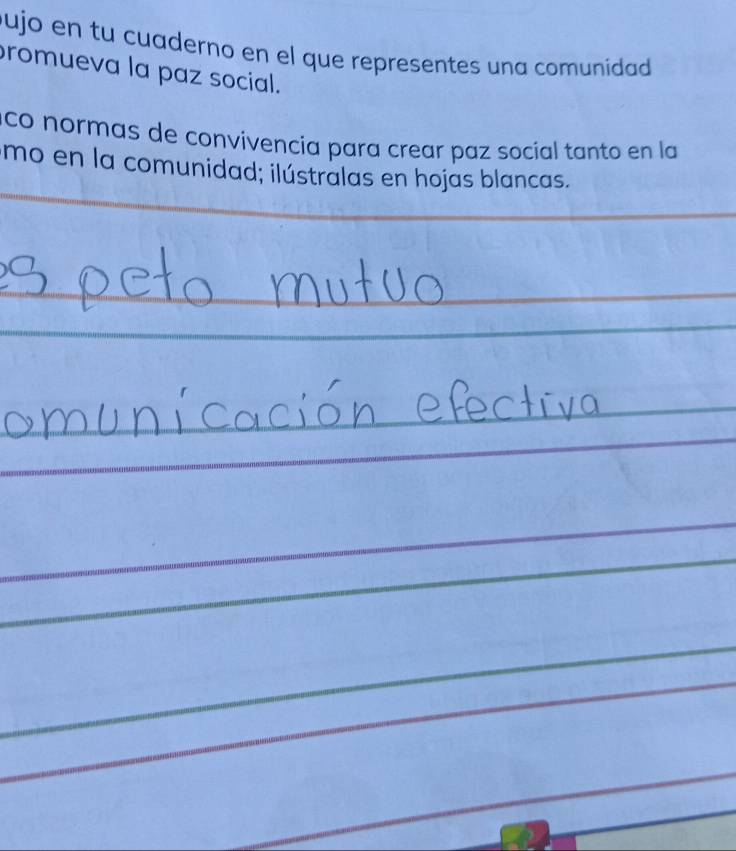 ujo en tu cuaderno en el que representes una comunidad
promueva la paz social.
co normas de convivencia para crear paz social tanto en la
mo en la comunidad; ilústralas en hojas blancas.
es peto mutuo
omunicación efectiva